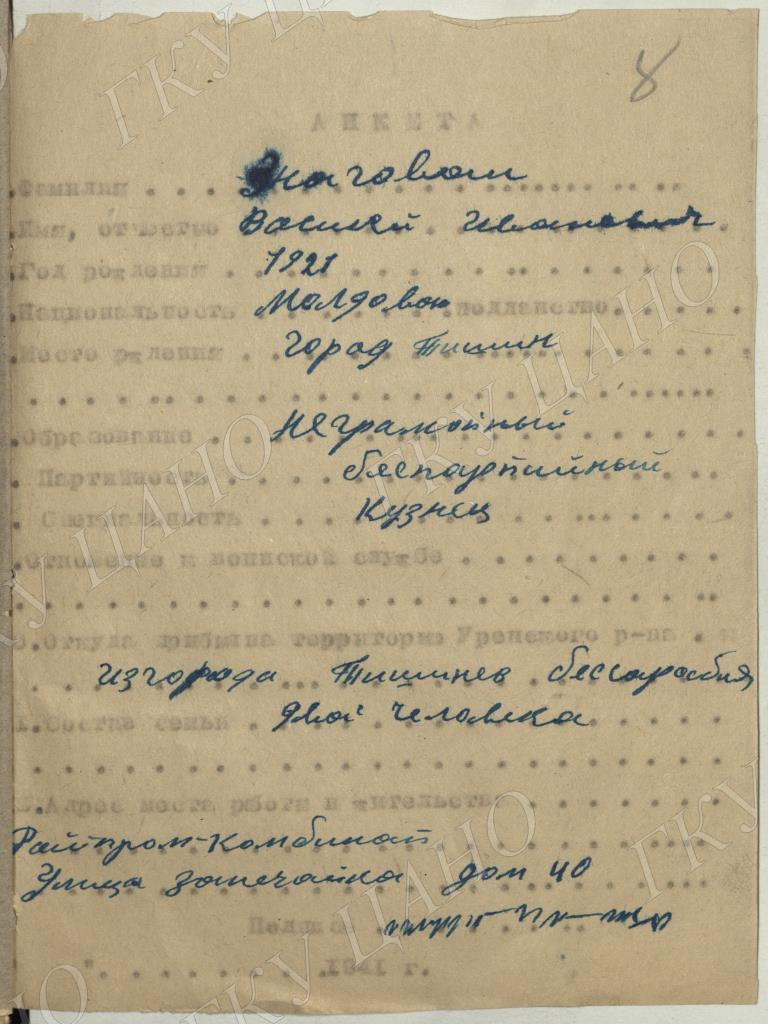 8
АНКЕТА
.Фамилия . . .
.Имя, отчество Василий Иванович
.Год рождения . . 1921
.Национальность Молдован подданство. . . .
.Место рждения . . город Тишин
.Образование . . . Неграмотный
. Партийность . . . беспартийный
. Специальность . . . Кузнец
.Отношение к воинской службе . . . . . . .
.Откуда прибыл на территорию Уренского р-на .
из города Тишинев бессарабия
1.Состав семьи . . двой человека
.Адрес места работы и жительства . . . . .
Райпром-комбинат
Улица запечайка дом 40
Подпись
" . . . . . . . 1941 г.